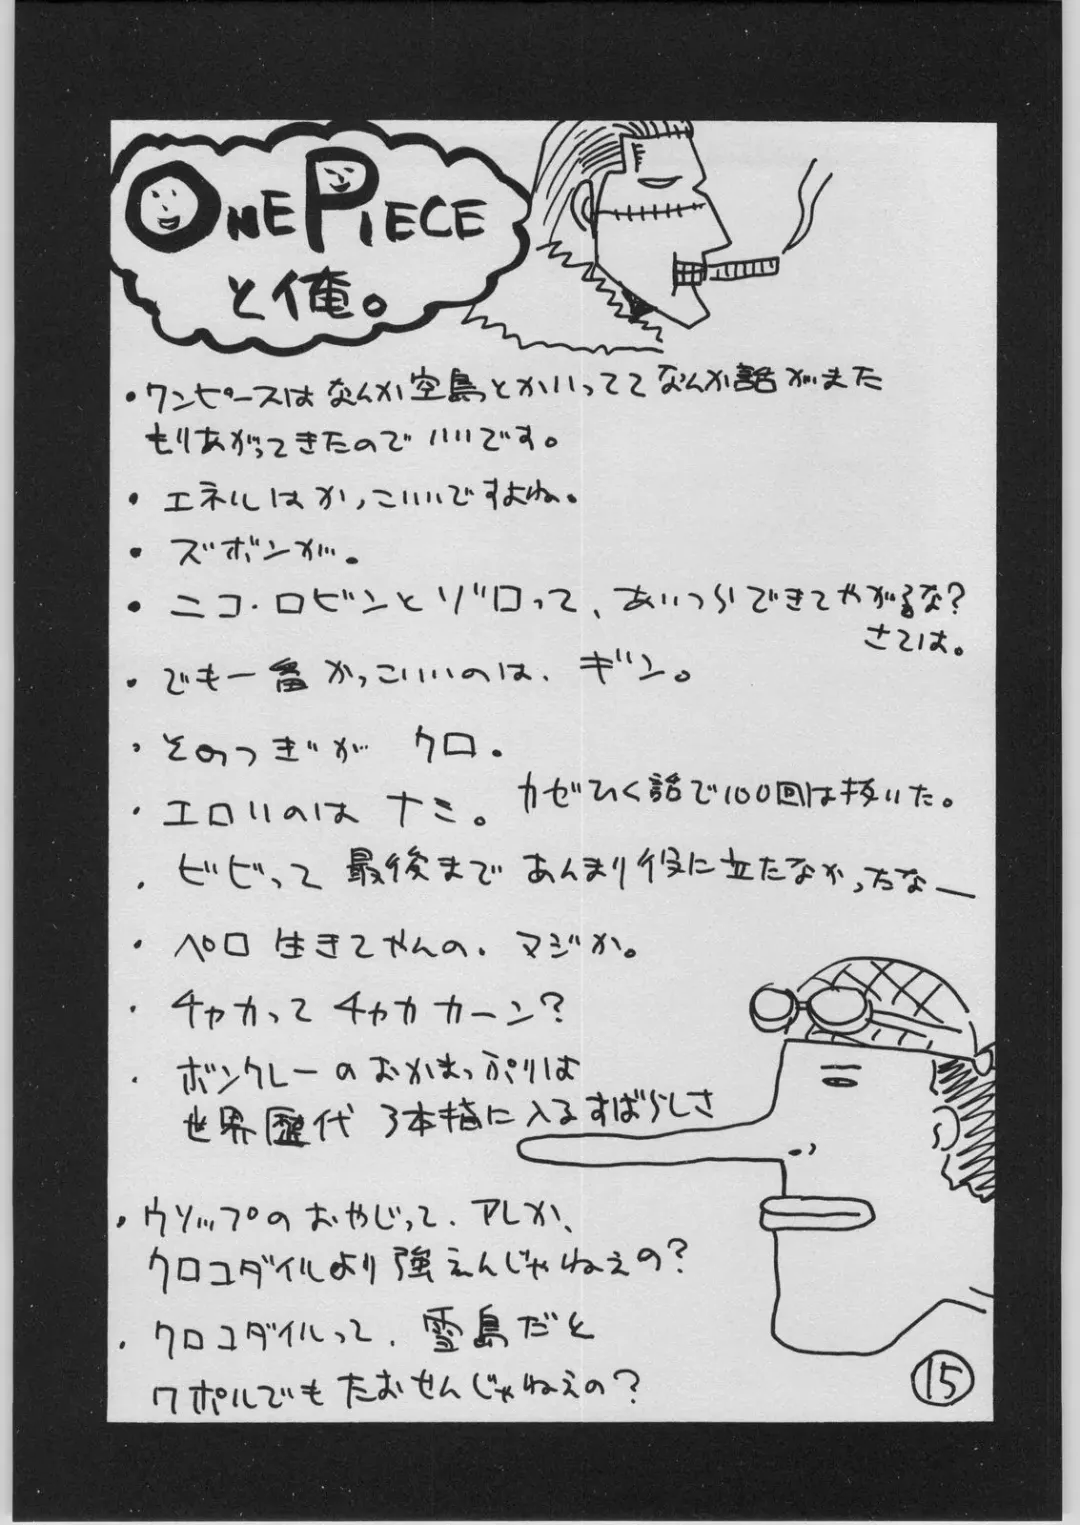 ONE PIECE
と俺。
・ワンピースはなんか空島とかいっててなんか話がまた
もりあがってきたのでいいです。
・エネルはかっこいいですよね。
・ズボンが。
・ニコ・ロビンとゾロって、あいつらできてやがるな?
さては。
・でも一番かっこいいのは、ギン。
・そのつぎがクロ。
・エロいのはナミ。カゼひく話で100回は抜いた。
・ビビって最後まであんまり役に立たなかったなー
・ペロ生きてやんの。マジか。
・チャカってチャカカーン?
・ボンクレーのおかまっぷりは
世界歴代3本指に入るすばらしさ
・ウソップのおやじって、アレか、
クロコダイルより強えんじゃねえの?
・クロコダイルって、雪島だと
ワポルでもたおせんじゃねえの?
15